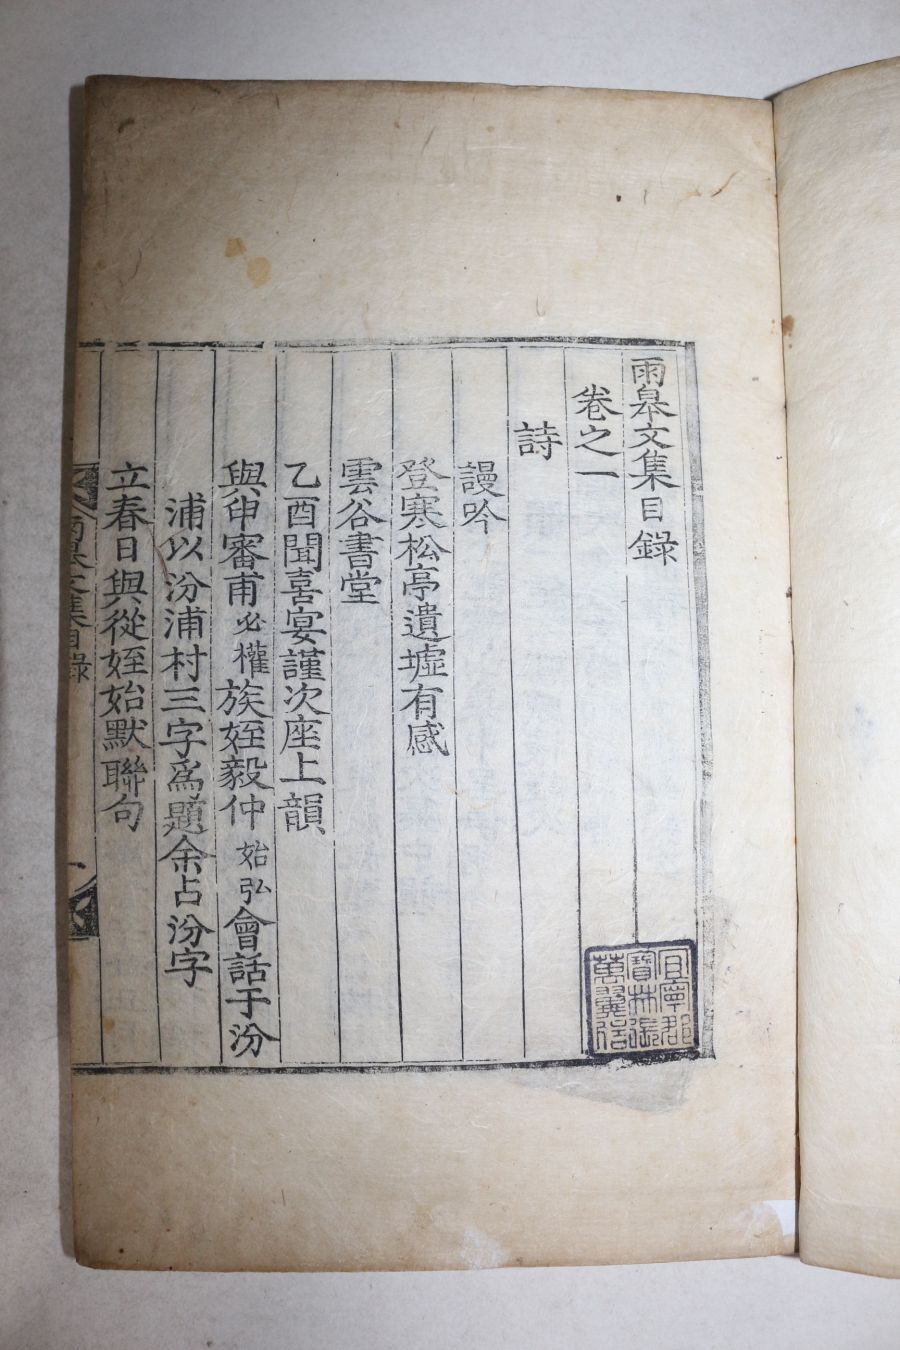 雨皋文集目錄
卷之一
詩
謾吟
登寒松亭遺墟有感
雲谷書堂
乙酉聞喜宴謹次座上韻
與申審甫必權族姪毅仲始弘會話于汾
浦以汾浦村三字爲題余占汾字
立春日與從姪始默聯句
雨皋文集目錄
宜寧郡
寶林張